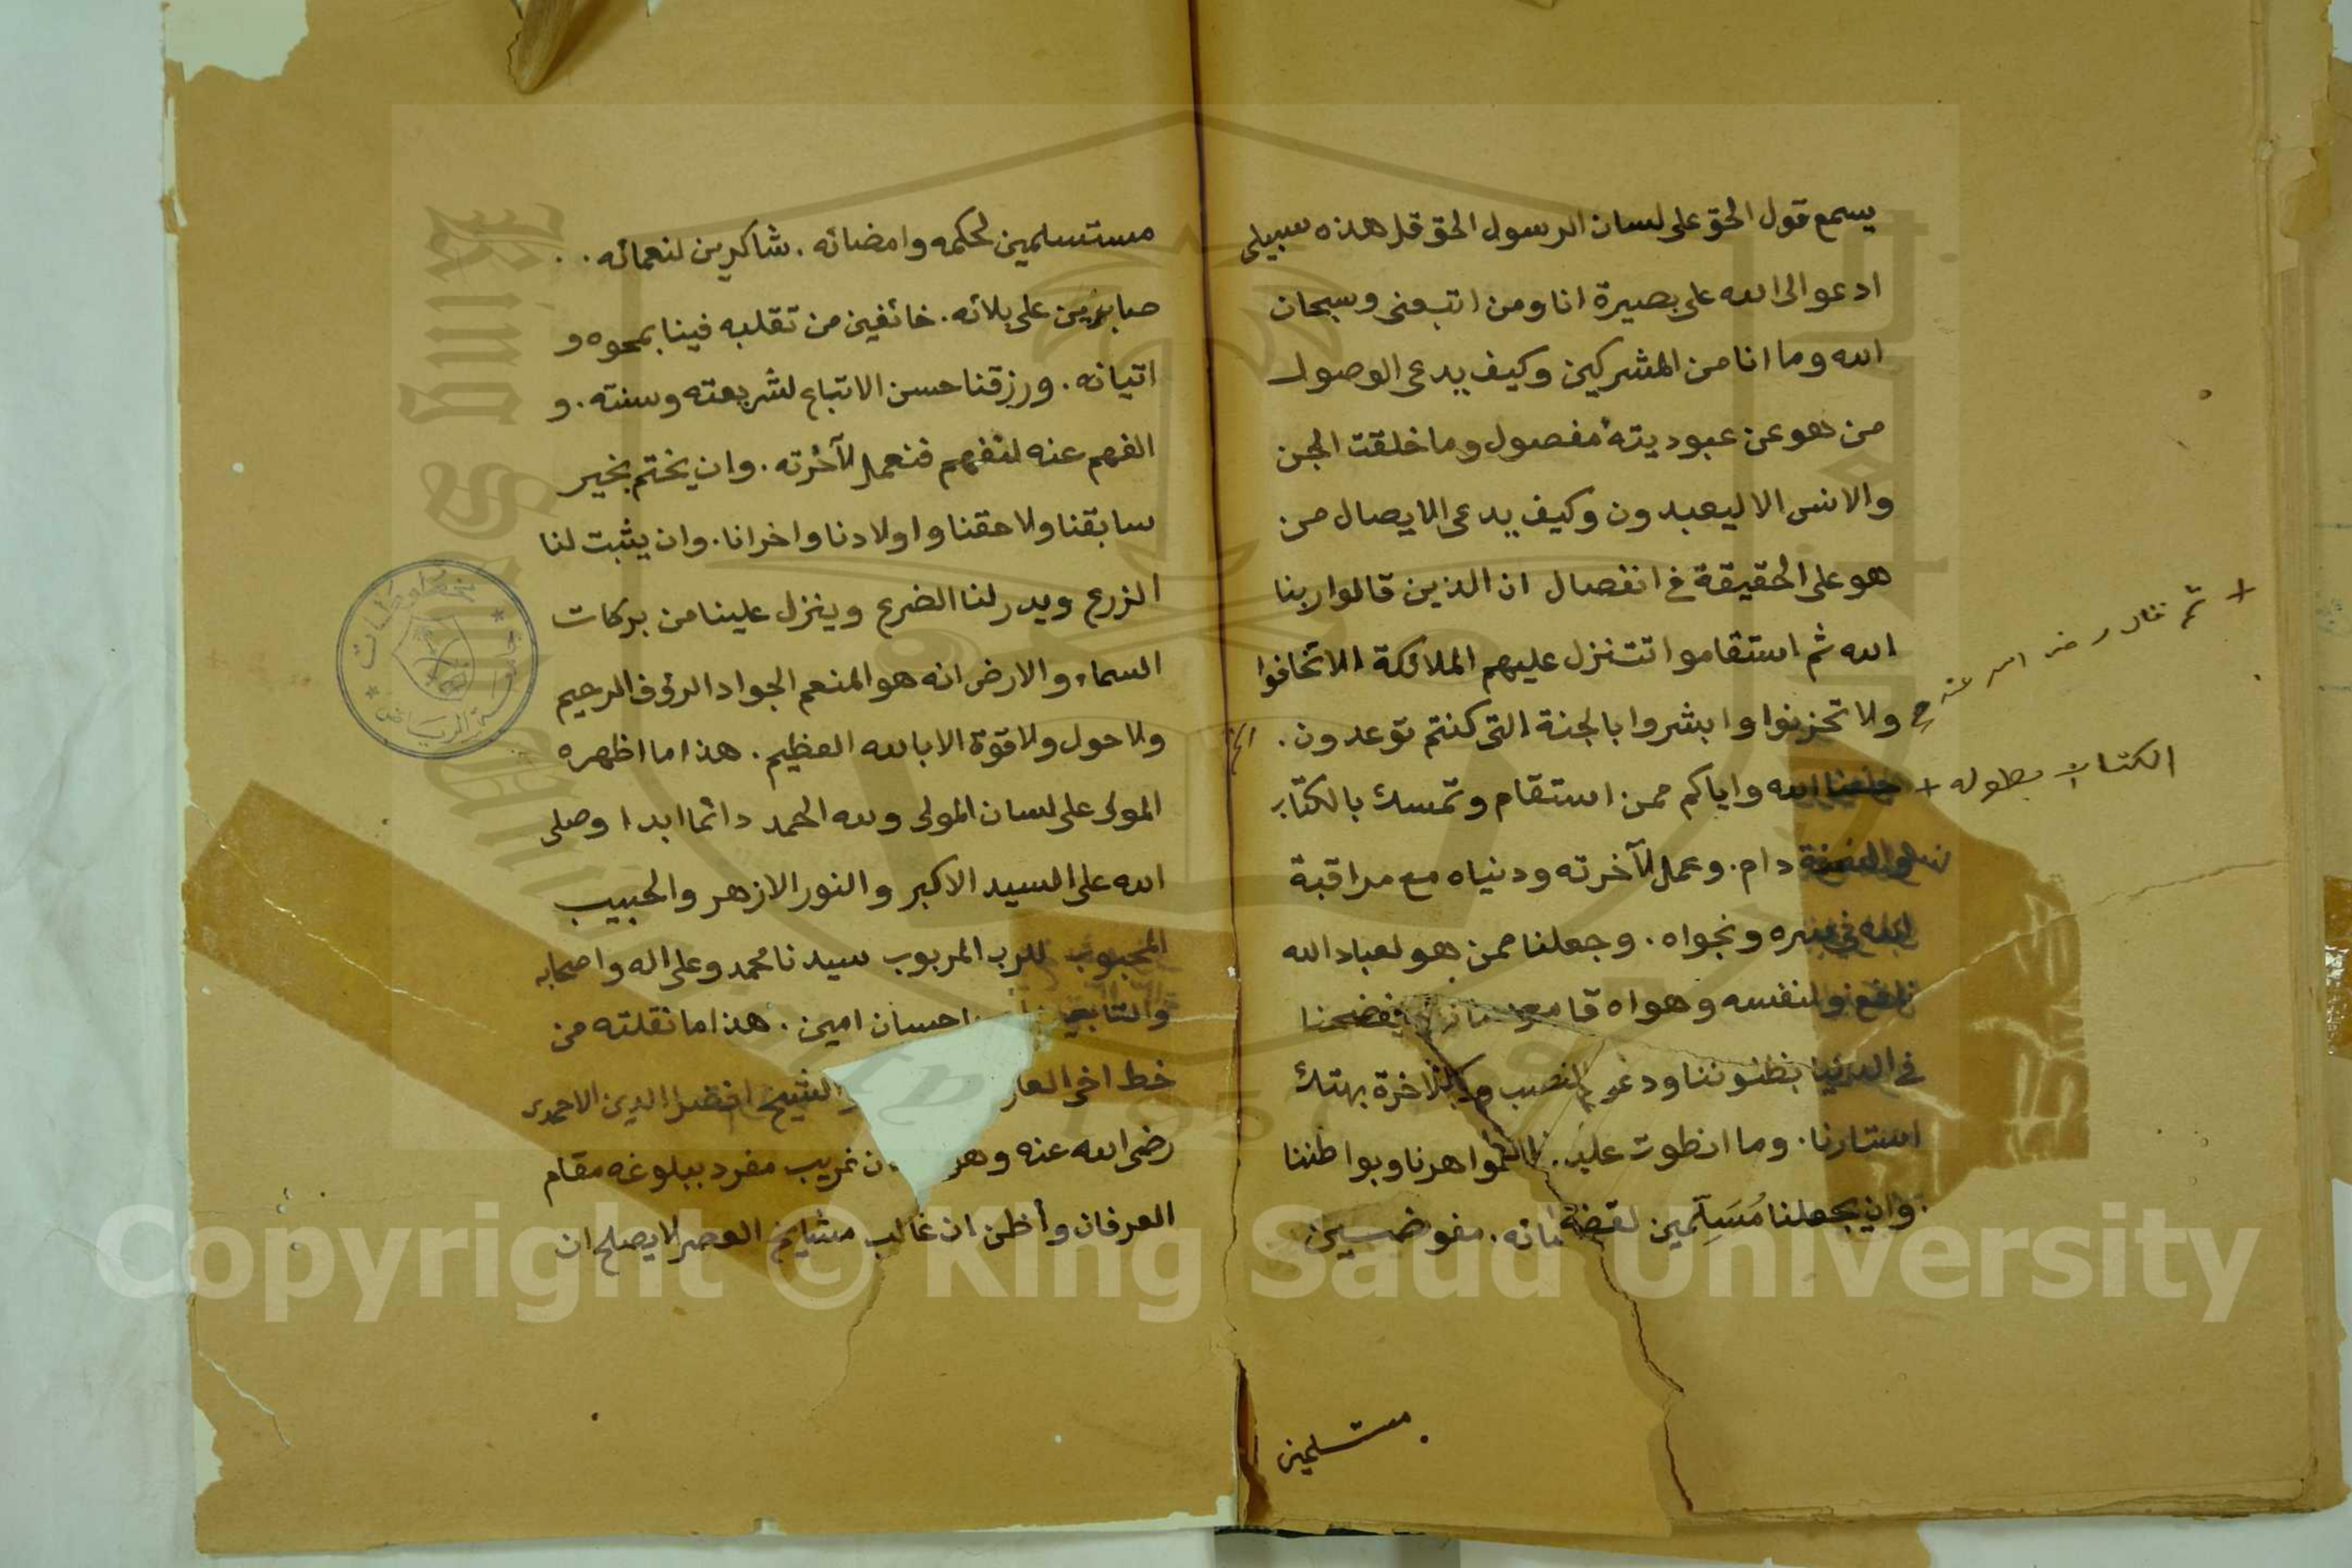 يسمع قول الحق على لسان الرسول الحق قل هذه سبيلى
ادعو الى الله على بصيرة انا ومن اتبعنى وسبحان
الله وما انا من المشركين وكيف يدعى الوصول
من هو عن عبوديته مفصول وما خلقت الجن
والانس الا ليعبدون وكيف يدعى الايصال من
هو على الحقيقة فى انفصال ان الذين قالوا ربنا
الله ثم استقاموا تتنزل عليهم الملائكة الا تخافوا
ولا تحزنوا وابشروا بالجنة التى كنتم توعدون .
جعلنا الله واياكم ممن استقام وتمسك بالكتاب
دام . وعمل لآخرته ودنياه مع مراقبة
ونجواه . وجعلنا ممن هو لعباد الله
نافع ولنفسه وهواه يفضحنا
فى الدنيا بظنوننا ودعوى بهتك
استارنا . وما انطوت عليه ظواهرنا وبواطننا
وان يجعلنا مُسَلِّمين لقضائه . مفوضين
مستسلمين
+ ثم قال رضى الله عنه
الكتاب بطوله +
مستسلمين لحكمه وامضائه . شاكرين لنعمائه . .
صابرين على بلائه . خائفين من تقلبه فينا بمحوه و
اتيانه . ورزقنا حسن الاتباع لشريعته وسنته . و
الفهم عنه لنفهم فنعمل لآخرته . وان يختم بخير
سابقنا ولاحقنا واولادنا واخرانا . وان يثبت لنا
الزرع ويدر لنا الضرع وينزل علينا من بركات
السماء والارض انه هو المنعم الجواد الرؤف الرحيم
ولا حول ولا قوة الا بالله العظيم . هذا ما اظهره
المولى على لسان المولى ولله الحمد دائما ابدا وصلى
الله على السيد الاكبر والنور الازهر والحبيب
المحبوب للرب المربوب سيدنا محمد وعلى اله واصحابه
والتابعين احسان امين . هذا ما نقلته من
خط اخى العار الشيخ افضل الدين الاحمدى
رضى الله عنه وهو غريب مفرد ببلوغه مقام
العرفان وأظن ان غالب مشايخ العصر لا يصلح ان
مخطوطات
جامعة الرياض
King Saud University
1957
Copyright © King Saud University